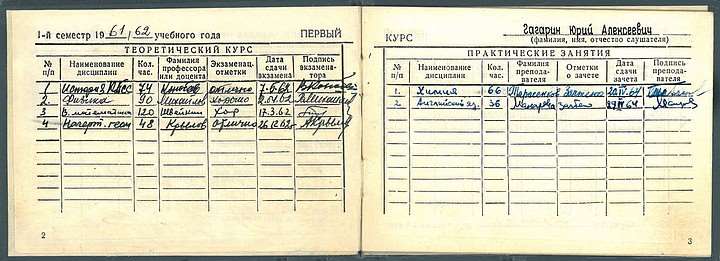 1-й семестр 1961/62 учебного года ПЕРВЫЙ
ТЕОРЕТИЧЕСКИЙ КУРС
№ п/п Наименование дисциплин Кол. час. Фамилия профессора или доцента Экзаменац. отметки Дата сдачи экзамена Подпись экзаменатора
1 История КПСС 74 отлично
2. Физика 90 Михайлов хорошо
3 В. математика 120 Хор 17.3.62
4 Начерт. геом 48 Крылов отлично
2
КУРС Гагарин Юрий Алексеевич
(фамилия, имя, отчество слушателя)
ПРАКТИЧЕСКИЕ ЗАНЯТИЯ
№ п/п Наименование дисциплин Кол. час. Фамилия преподавателя Отметки о зачете Дата сдачи зачета Подпись преподавателя
1. Химия 66 Тарасенков
2. Английский яз. 36
3